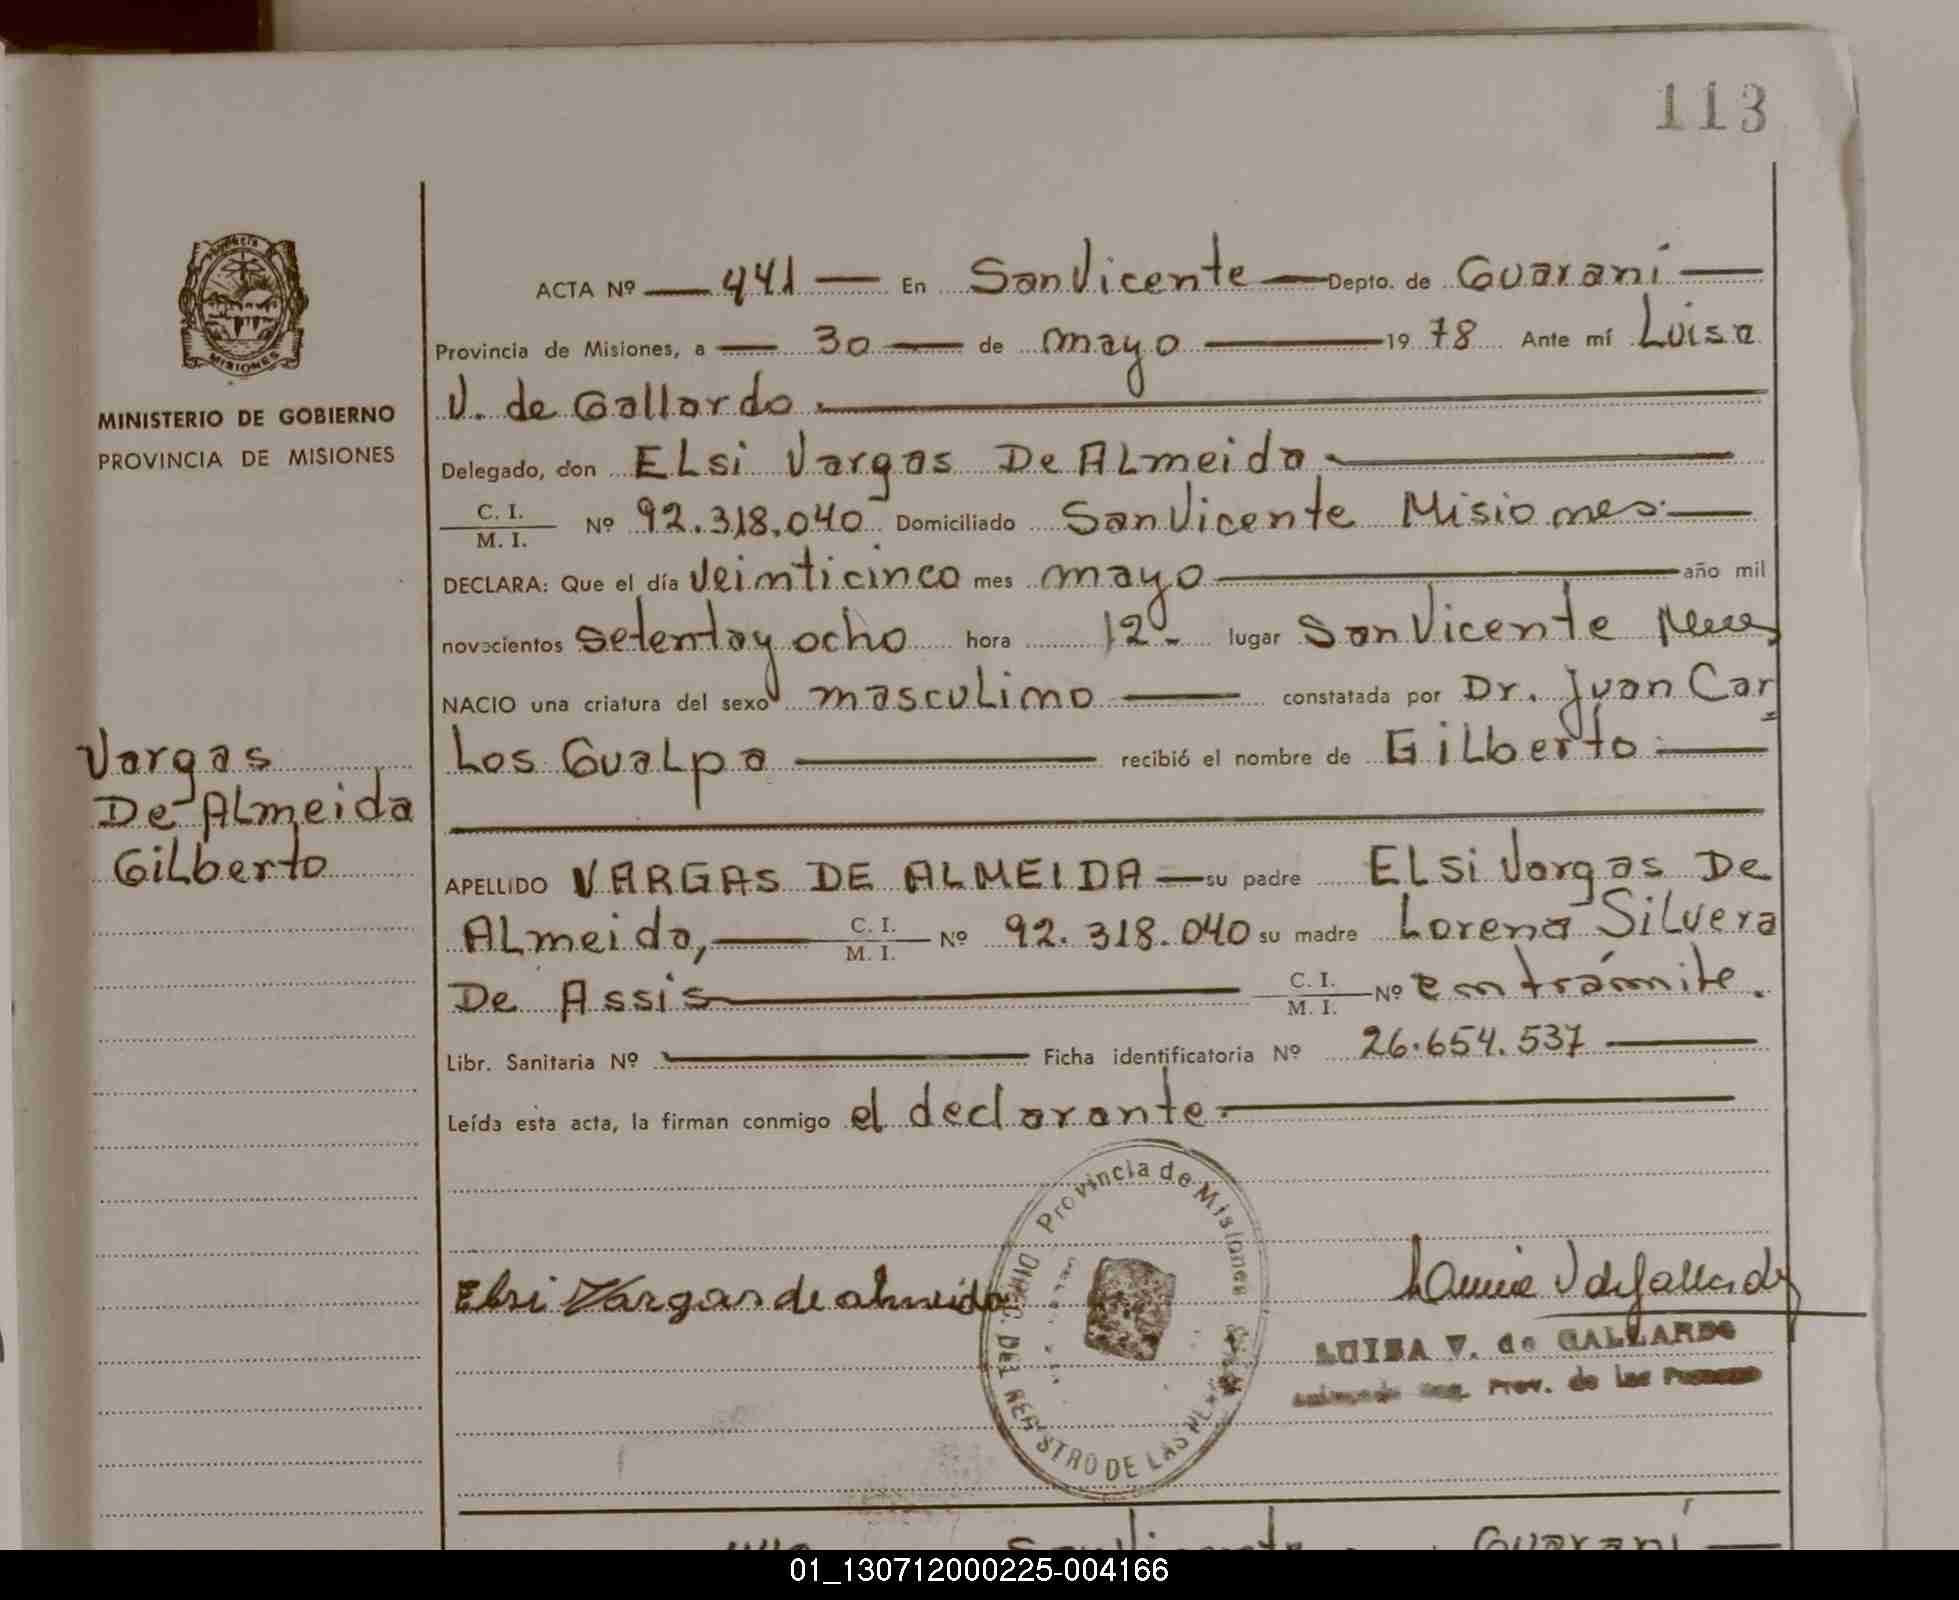 113
PROVINCIA
MISIONES
MINISTERIO DE GOBIERNO
PROVINCIA DE MISIONES
Vargas
De Almeida
Gilberto
ACTA Nº 441 En San Vicente Depto. de Guaraní
Provincia de Misiones, a 30 de mayo 1978 Ante mí Luisa
V. de Gallardo.
Delegado, don Elsi Vargas De Almeida
C. I.
M. I.
Nº 92.318.040 Domiciliado San Vicente Misiones.
DECLARA: Que el día veinticinco mes mayo año mil
novecientos setenta y ocho hora 12.- lugar San Vicente Mnes
NACIO una criatura del sexo masculino constatada por Dr. Juan Car=
los Gualpa recibió el nombre de Gilberto
APELLIDO VARGAS DE ALMEIDA su padre Elsi Vargas De
Almeida, C. I. M. I. Nº 92.318.040 su madre Lorena Silvera
De Assis C. I. M. I. Nº en trámite.
Libr. Sanitaria Nº Ficha identificatoria Nº 26.654.537
Leída esta acta, la firman conmigo el declarante.
Provincia de Misiones
DIREC. DEL REGISTRO DE LAS
Elsi Vargas de almeida
LUISA V. de GALLARDO
Prov. de las
San Vicente Guaraní
01_130712000225-004166